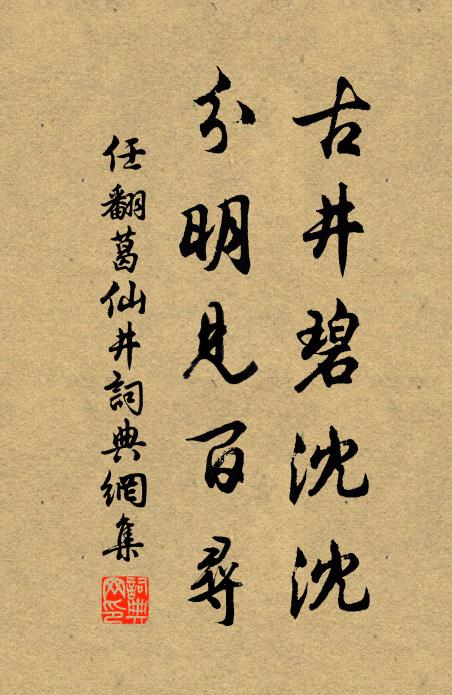 古井碧沈沈
分明見百尋
任翻葛仙井詞典網集
詞典网印